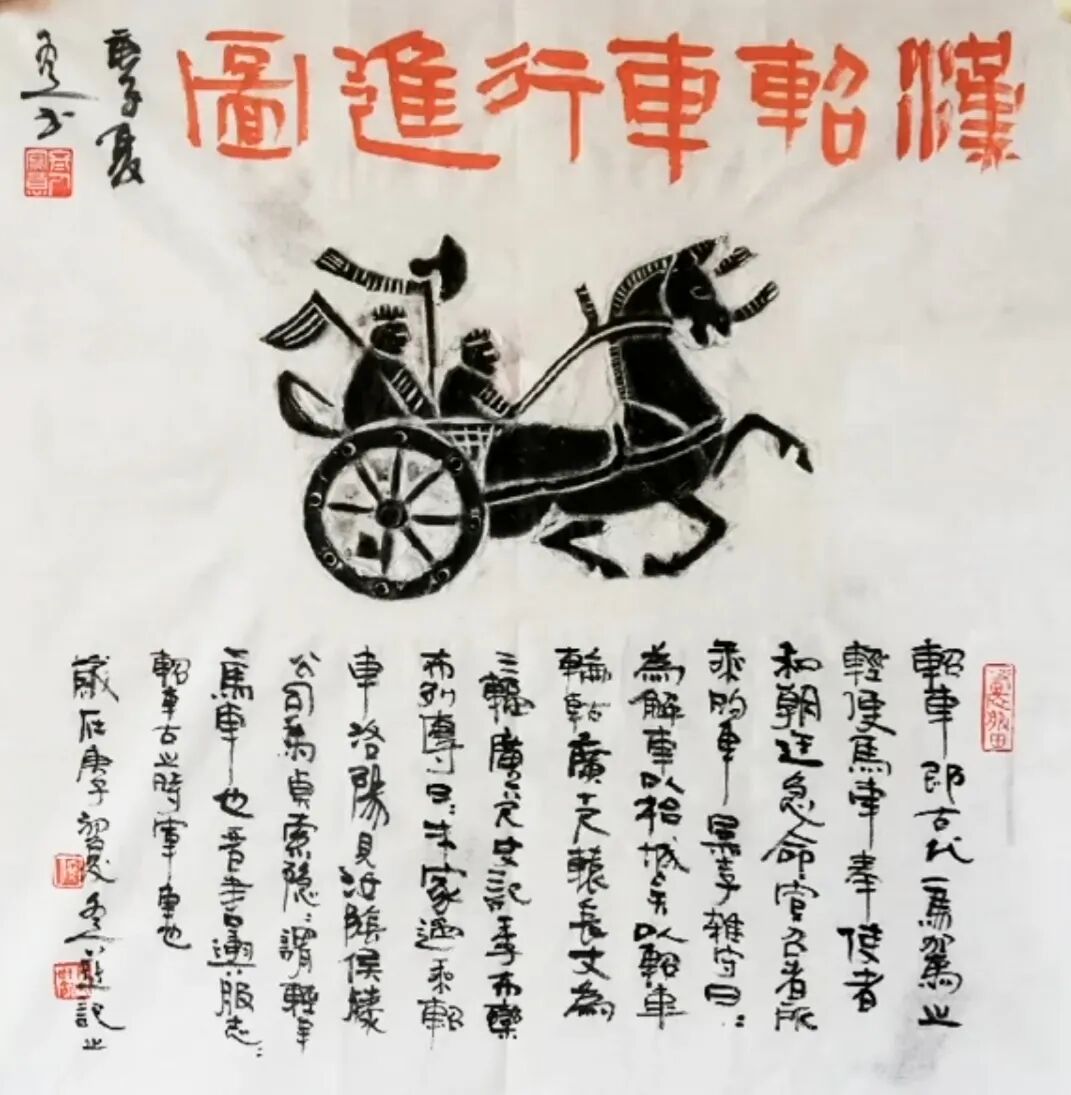 漢軺車行進圖
庚子夏
軺車即古代一馬駕之
輕便馬車奉使者
和朝廷急命宣召者所
乘的車墨子雜守曰：
為解車以枱城矣以軺車
輪軲廣十尺轅長丈為
三輻廣六尺史記季布欒
布列傳曰：朱家迺乘軺
車洛陽見汝陰侯滕
公司馬貞索隱：謂輕車
一馬車也晉書輿服志：
軺車古之時軍車也
歲在庚子初夏題記之